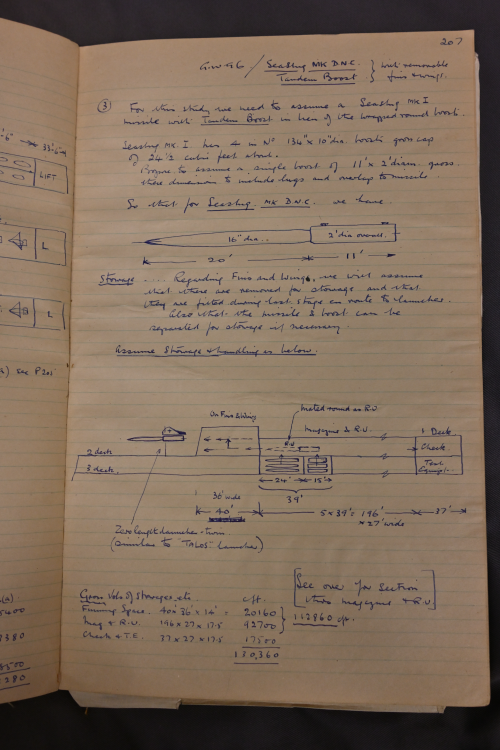 207
GW96 / Seaslug MK D.N.C. } with removable
Tandem Boost } fins & wings.
③ For this study we need to assume a Seaslug MK I
missile with Tandem Boost in lieu of the wrapped round boosts.
Seaslug MK. I has 4 in No 134" x 10" dia. boosts gross cap
of 24.2 cubic feet about.
Propose to assume a single boost of 11' x 2' diam. gross.
these dimensions to include lugs and overlap to missile.
So that for Seaslug MK D.N.C. we have.
16" dia..
2' dia overall.
20'
11'
Stowage ..... Regarding Fins and Wings, we will assume
that these are removed for stowage and that
they are fitted during last stage en route to launcher.
Also that the missile & boost can be
separated for stowage if necessary.
Assume Stowage & handling as below.
On Fins & Wing
mated round as R.U
Magazine & R.U.
1 Deck
R.U
Check.
2 deck
3 deck.
Test
Equip..
24'
15'
39'
36' wide
40'
5 x 39' = 196'
x 27' wide
37'
Zero length launcher - twin
(similar to "TALOS" launcher)
Gross Vols. of Stowages, etc. c/ft.
Finning Space. 40 x 36 x 14' = 20160
Mag & R.U. 196 x 27 x 17.5 92700
Check & T.E. 37 x 27 x 17.5 17500
130,360
112860 cft.
[See over for Section
thro. magazine & R.U]
6"
33'6"
LIFT
L
L
see P 205
5400
9380
8500
280